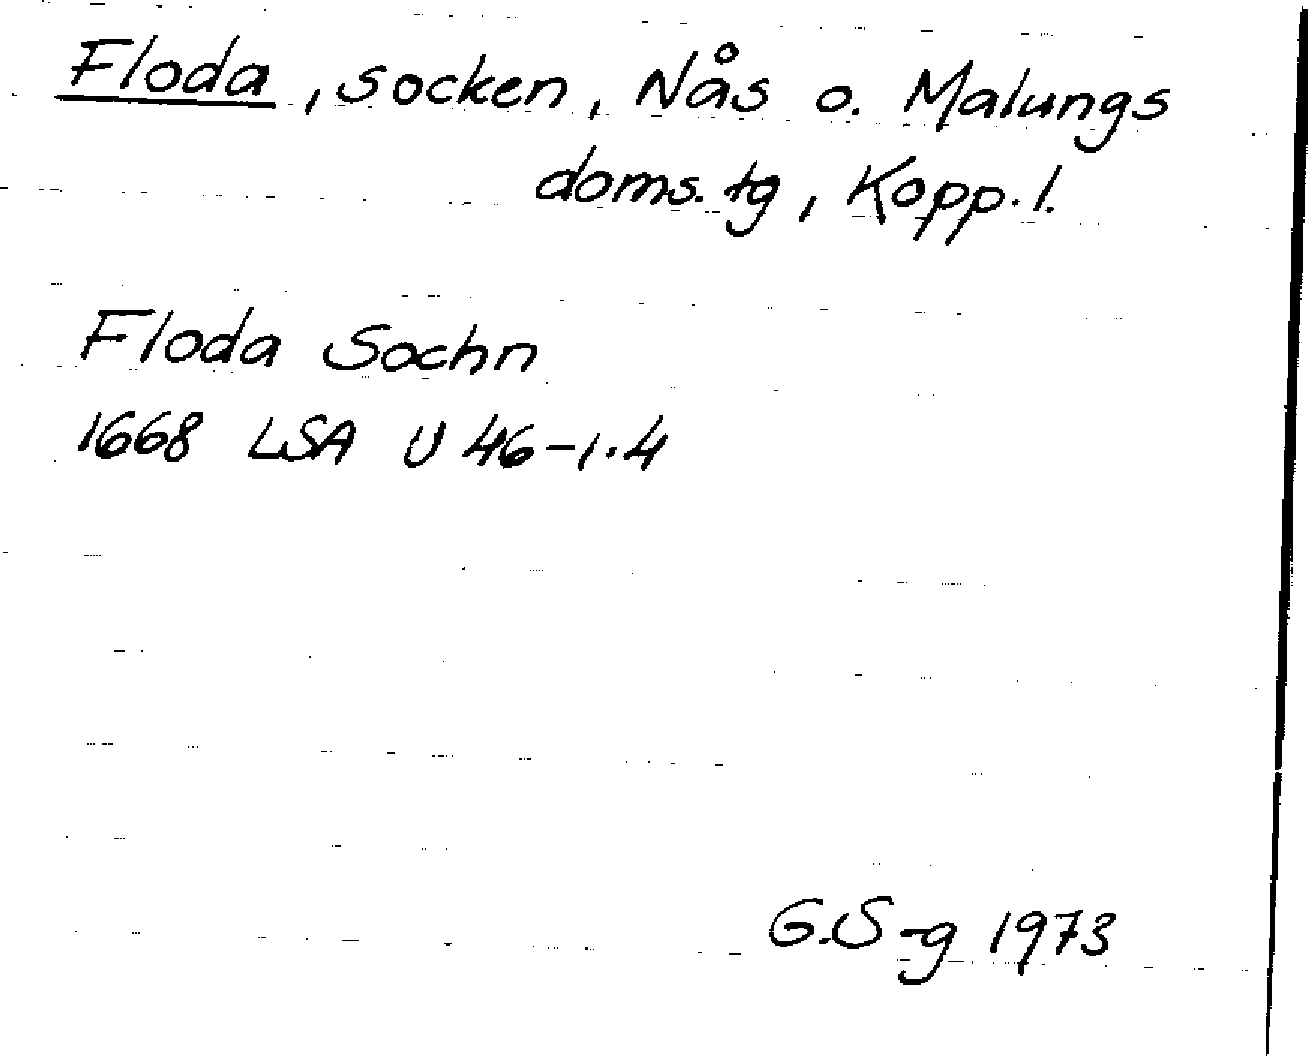 Floda, socken, Nås o. Malungs
doms.tg, Kopp.l.
Floda Sochn
1668 LSA U 46-1.4
G.S-g 1973